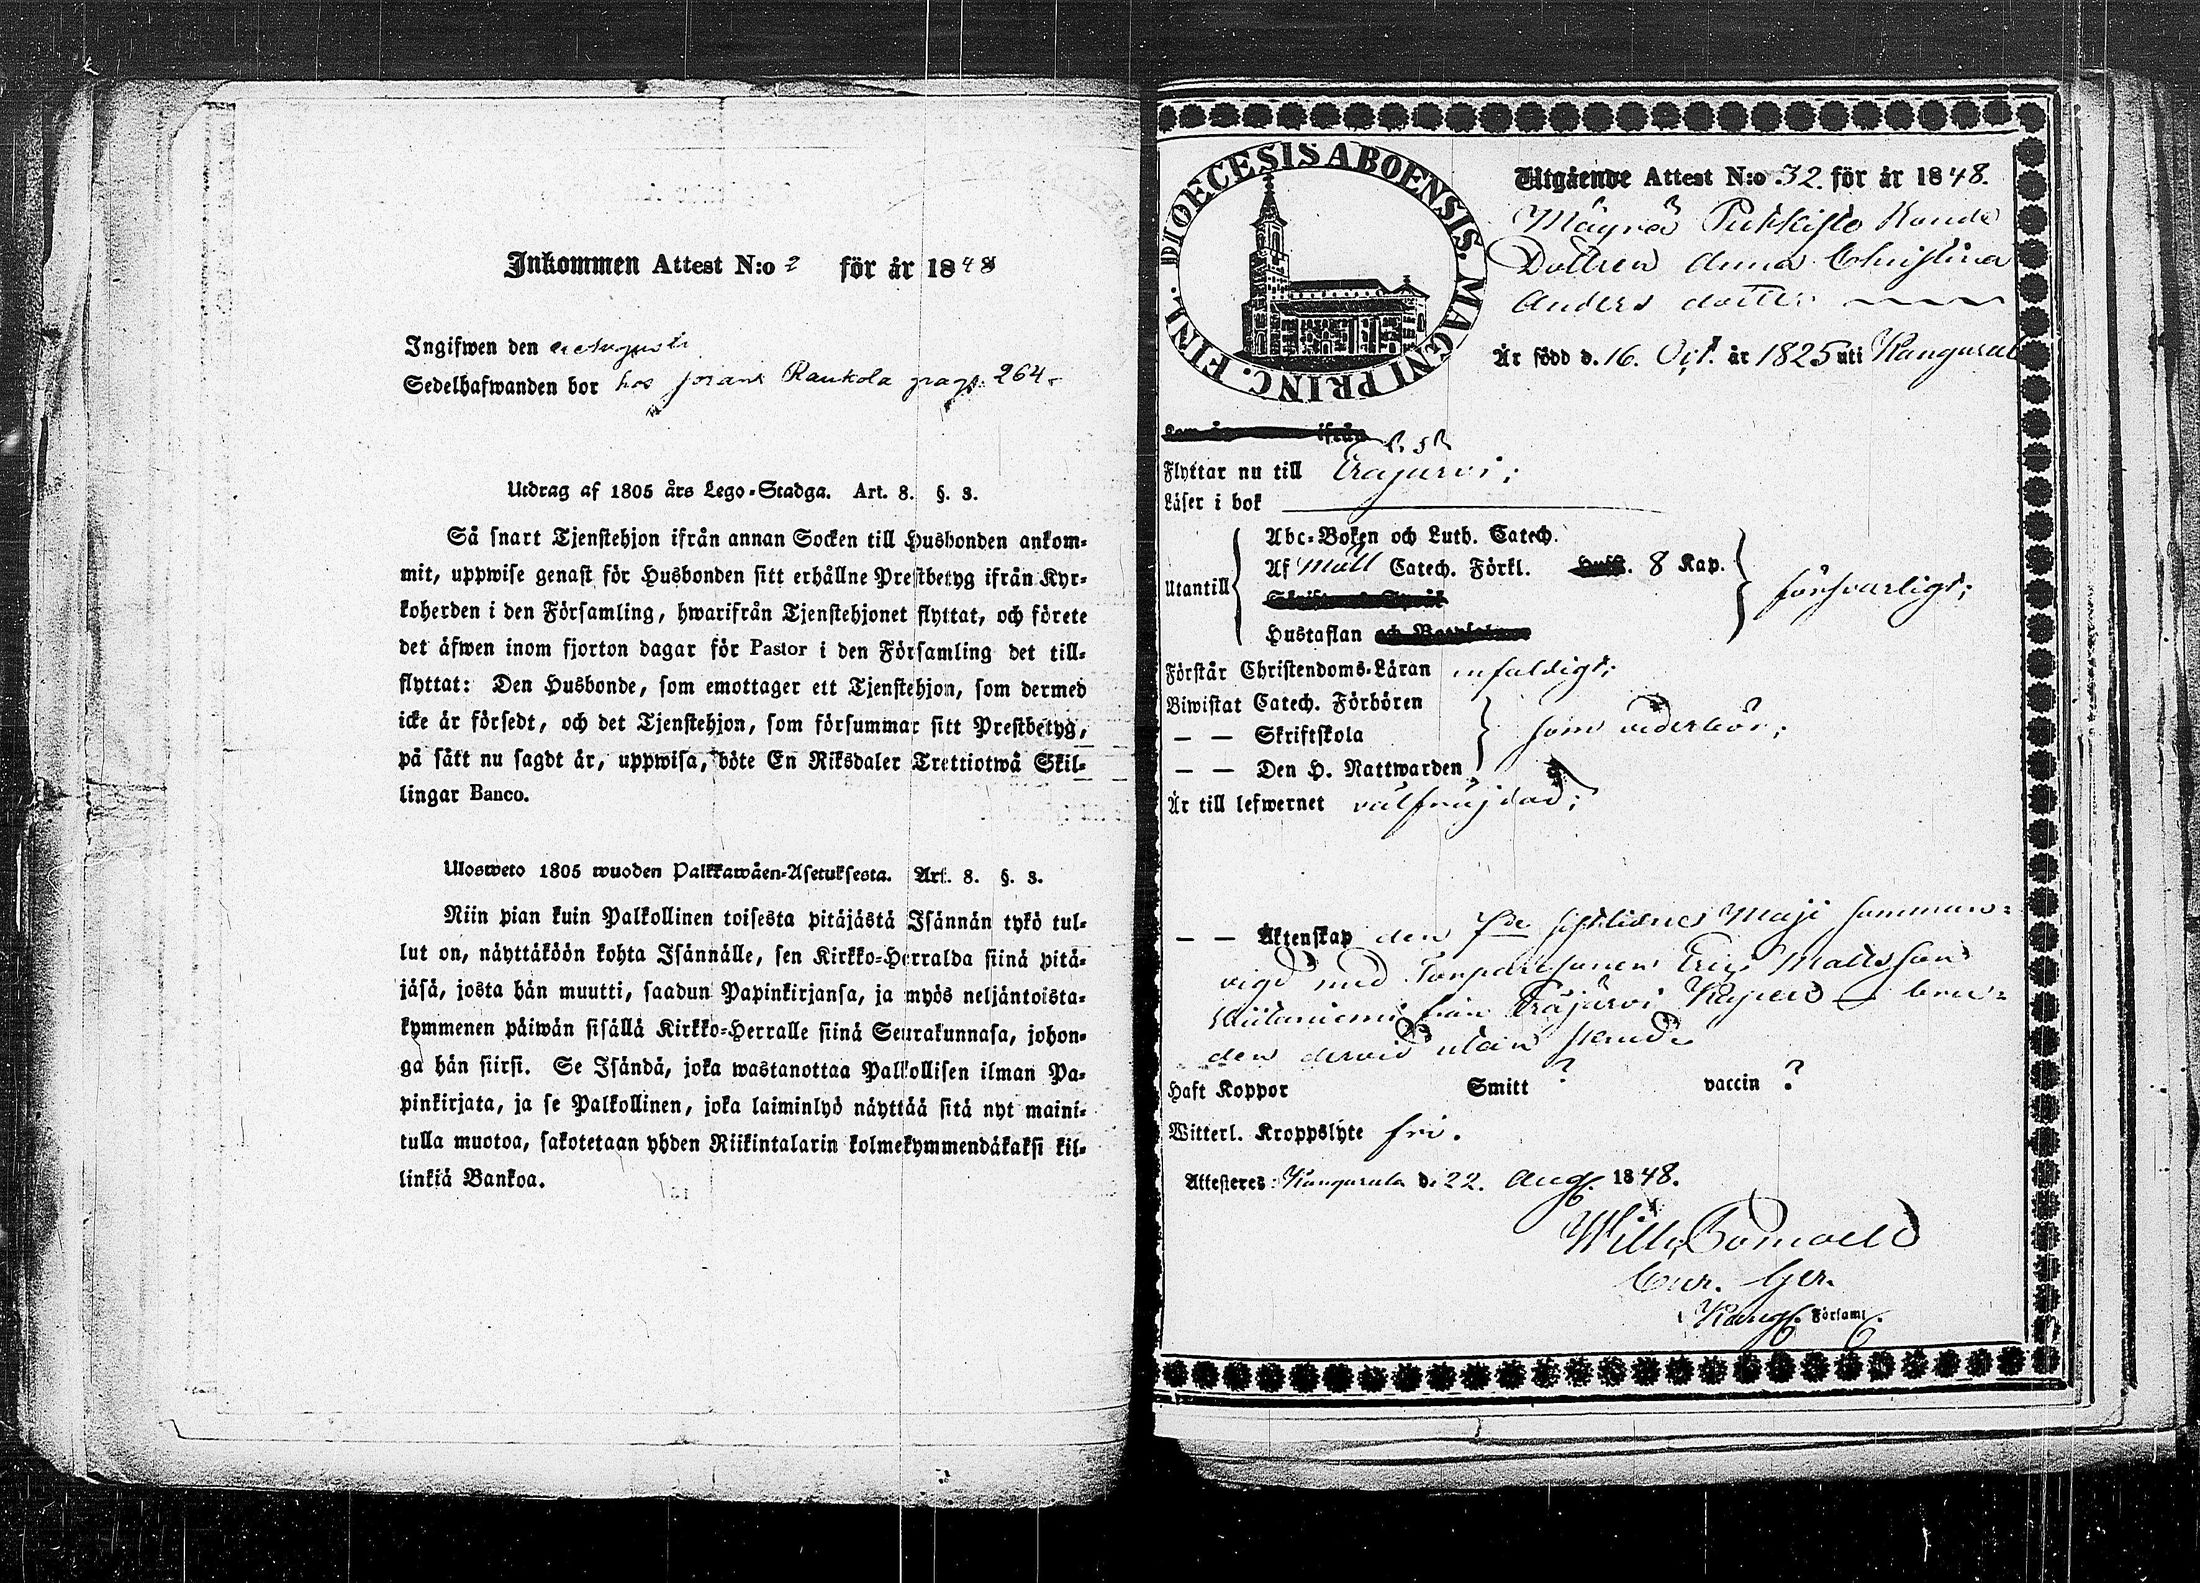 Inkommen Attest N:o 2 för år 1848
Ingifwen den Augusti
Sedelhafwanden bor hos Raukola pag. 264
Utdrag af 1805 års Lego-Stadga. Art. 8. §. 3.
Så snart Tjenstehjon ifrån annan Socken till Husbonden ankom-
mit, uppwise genast för Husbonden sitt erhållne Prestbetyg ifrån Kyr-
koherden i den Församling, hwarifrån Tjenstehjonet flyttat, och förete
det äfwen inom fjorton dagar för Pastor i den Församling det till-
flyttat: Den Husbonde, som emottager ett Tjenstehjon, som dermed
icke är försedt, och det Tjenstehjon, som försummar sitt Prestbetyg,
på sätt nu sagdt är, uppwisa, böte En Riksdaler Trettiotwå Skil-
lingar Banco.
Ulosweto 1805 wuoden Palkkawäen-Asetuksesta. Art. 8. §. 3.
Niin pian kuin Palkollinen toisesta pitäjästä Isännän tykö tul-
lut on, näyttäköön kohta Isännälle, sen Kirkko-Herralda siinä pitä-
jäsä, josta hän muutti, saadun Papinkirjansa, ja myös neljäntoista-
kymmenen päiwän sisällä Kirkko-Herralle siinä Seurakunnasa, johon-
ga hän siirsi. Se Isändä, joka wastanottaa Palkollisen ilman Pa-
pinkirjata, ja se Palkollinen, joka laiminlyö näyttää sitä nyt maini-
tulla muotoa, sakotetaan yhden Riikintalarin kolmekymmendäkaksi kil-
linkiä Bankoa.
DIOECESIS ABOENSIS. MAGNI PRINC. FINL.
Utgående Attest N:o 32. för år 1848.
Mäyrä Pukkisto Bonde
Dottren Anna Christina
Anders dotter
Är född d. 16. Oct. år 1825 uti Kangasala
ifrån
Flyttar nu till Eräjärvi;
Läser i bok
Utantill
Abc-Boken och Luth. Catech.
Af Möll Catech. Förkl. 8 Kap.
försvarligt;
Hustaflan
Förstår Christendoms-Läran enfaldigt;
Biwistat Catech. Förhören
— — Skriftskola
som vederbör;
— — Den H. Nattwarden
Är till lefwernet välfräjdad;
— — Äktenskap den 7de sistlidne Maji samman-
vigd med Torparesonen Eric Mattsson
från Eräjärvi Kapell
den dervid utan
Haft Koppor Smitt ? vaccin ?
Witterl. Kroppslyte fri.
Attesteres: Kangasala d. 22. Aug. 1848.
Wilh.
Cur. Ger.
i Kangs. Församl.